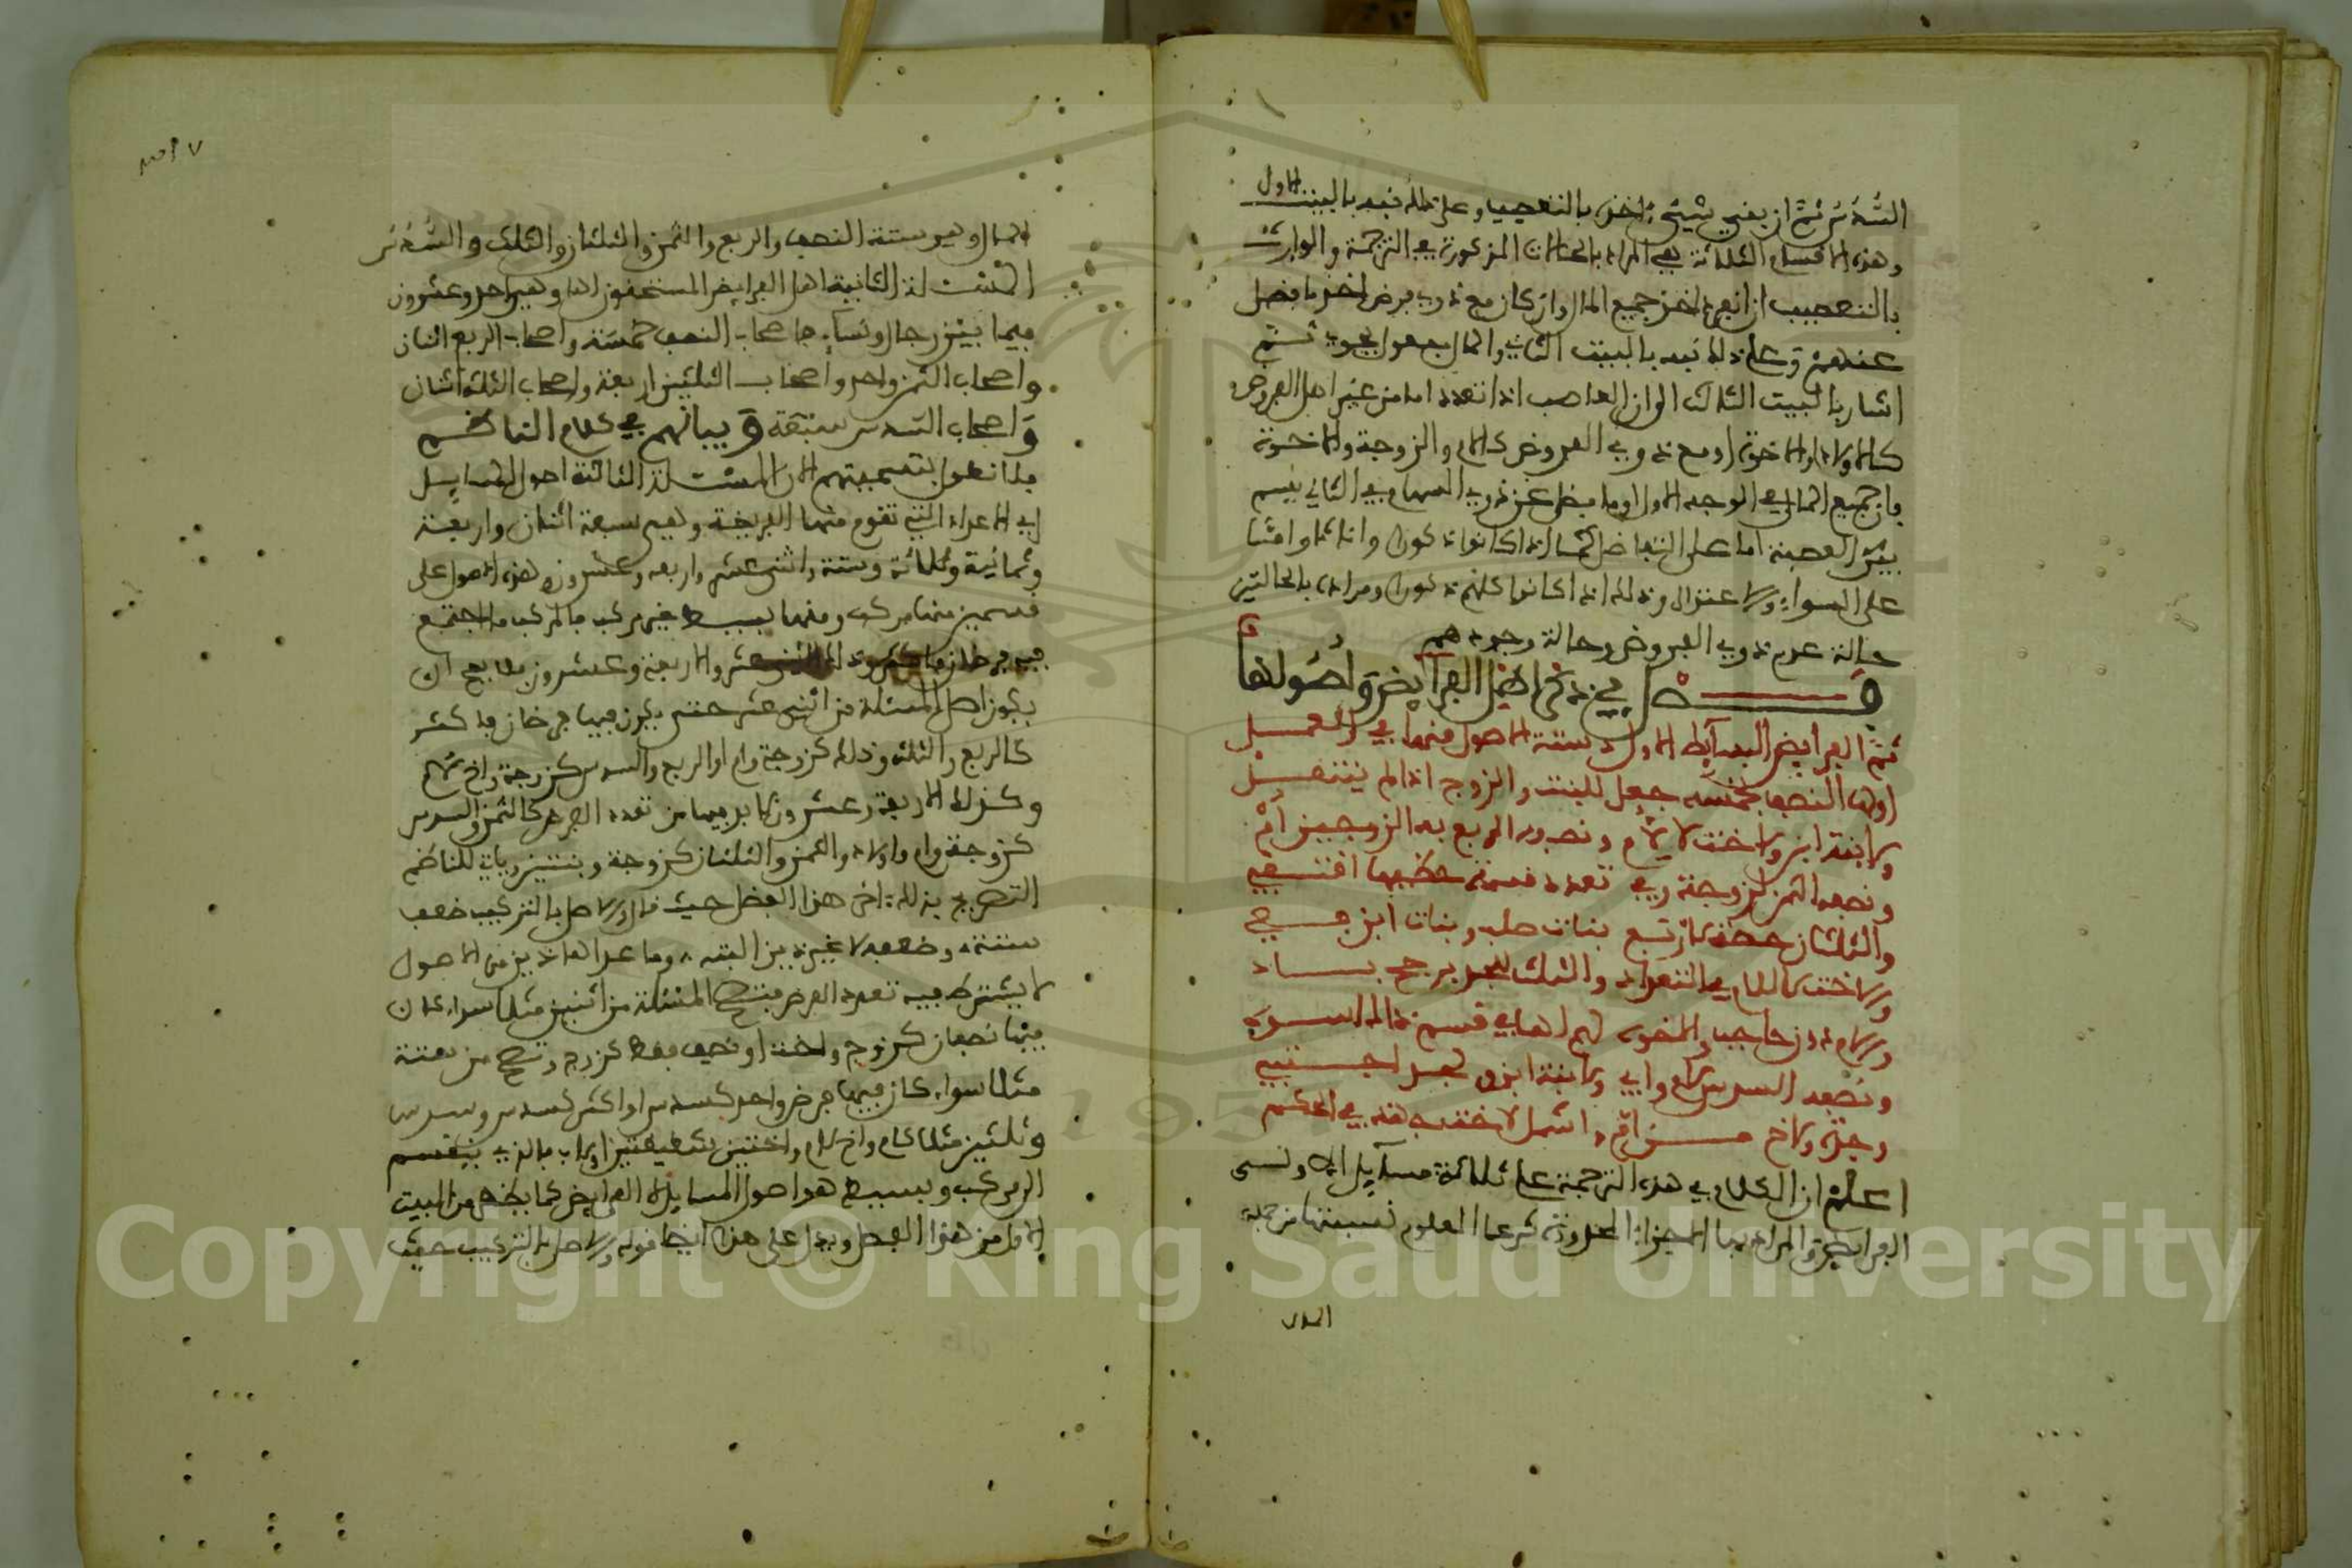 السدس ثم ان بقي شيء اخذه بالتعصيب وعلى ذلك نبه بالبيت الاول
وهذه الاقسام الثلاثة هي المراد بالحالات المذكورة في الترجمة والوارث
بالتعصيب ان انفرد اخذ جميع المال وان كان مع ذوي فرض اخذ ما فضل
عندهم وعلى ذلك نبه بالبيت الثاني والمال يحوي ثم
اشار بالبيت الثالث الى ان العاصب اذا تعدد اما من غير اهل الفروض
كالاولاد او الاخوة او مع ذوي الفروض كالام والزوجة والاخوة
فان جميع المال في الوجه الاول او ما فضل عن ذوي السهام في الثاني يقسم
بين العصبة اما على التفاضل كما اذا كانوا ذكورا واناثا واما
على السواء والاعتدال وذلك اذا كانوا كلهم ذكورا ومراده بالحالتين
حالة عدم ذوي الفروض وحالة وجودهم
فصل في ذكر اهل الفرائض واصولها
ثم الفرائض البسائط الاول ستة الاصول منها في العمل
اولها النصف لخمسة جعل للبنت والزوج اذا لم ينتقل
ولابنة ابن ولاخت لا لام ونصفه الربع به الزوجين ام
ونصفه الثمن لزوجة وفي تعدد قسمة حظها اقتفي
والثلثان حصة لاربع بنات صلب وبنات ابن فع
وللاخت لا للام في التعداد والثلث للجد يرجح باد
وللام دون حاجب والاخوة لهم لها في قسم ذاك اسوة
ونصفه السدس لام واب ولابنة ابن وجد اجتبي
وجدة ولاخ من ام واشمل لاخت جهة في الحكم
اعلم ان الكلام في هذه الترجمة على ثلاثة مسائل الاولى
الفرائض والمراد بها الاجزاء المحدودة شرعا المعلوم نسبتها من جملة
المال
المال وهي ستة النصف والربع والثمن والثلثان والثلث والسدس
المسئلة الثانية اهل الفرائض المستحقون لها وهم احد وعشرون
فيما بين رجال ونساء فاصحاب النصف خمسة واصحاب الربع اثنان
واصحاب الثمن واحد واصحاب الثلثين اربعة واصحاب الثلث اثنان
واصحاب السدس سبعة وبيانهم في كلام الناظم
فلا نطول بتسميتهم الان المسئلة الثالثة اصول المسايل
اي الاعداد التي تقوم منها الفريضة وهي سبعة اثنان واربعة
وثمانية وثلاثة وستة واثنى عشر واربعة وعشرون وهذه الاصول على
قسمين منها مركب ومنها بسيط غير مركب فالمركب ما اجتمع
فيه فرضان فاكثر وذلك الاثنى عشر والاربعة وعشرون فلا يصح ان
يكون اصل المسئلة من اثنى عشر حتى يكون فيها فرضان فاكثر
كالربع والثلث وذلك كزوجة وام او الربع والسدس كزوجة واخ لام
وكذلك الاربعة وعشرون لا بد فيها من تعدد الفرض كالثمن والسدس
كزوجة وام واولاد والثمن والثلثان كزوجة وبنتين وياتي للناظم
التصريح بذلك اخر هذا الفصل حيث قال والاصل بالتركيب ضعف
ستة وضعفه لا غير ذين البتة وما عدا هاذين من الاصول
لا يشترط فيه تعدد الفرض فتصح المسئلة من اثنين مثلا سواء كان
فيها نصفان كزوج واخت او نصف فقط كزوج وتصح من ستة
مثلا سواء كان فيها فرض واحد كسدس او اكثر كسدس وسدس
وثلثين مثلا كام واخ لام واختين شقيقتين او لاب فالذي ينقسم
الى مركب وبسيط هو اصول المسايل لا الفرائض كما يظهر من البيت
الاول من هذا الفصل ويدل على هذا ايضا قوله والاصل بالتركيب حيث